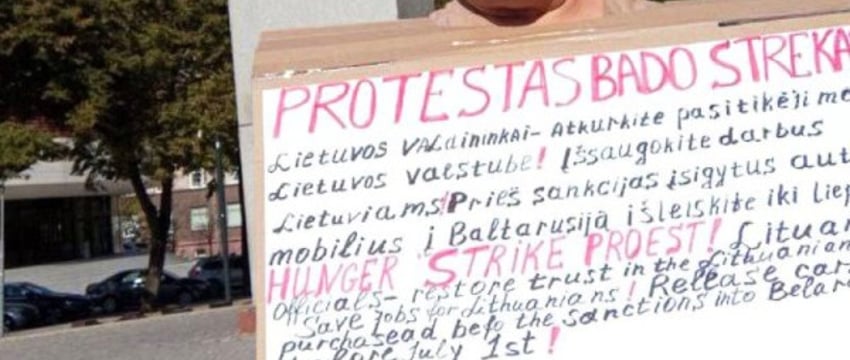 PROTESTAS BADO STREKA
Lietuvos VALdininkai- Atkurkite pasitikėji mo
Lietuvos valstube! Išsaugokite darbus
Lietuviams! Prieš sankcijas įsigytus aut
mobilius į Baltarusiją išleiskite iki Liep
HUNGER STRIKE PROEST! Lituan
Officials- restore trust in the Lithuanian
Save jobs for Lithuanians! Release car
purchasead befo the sanctions into Belar
July 1st!